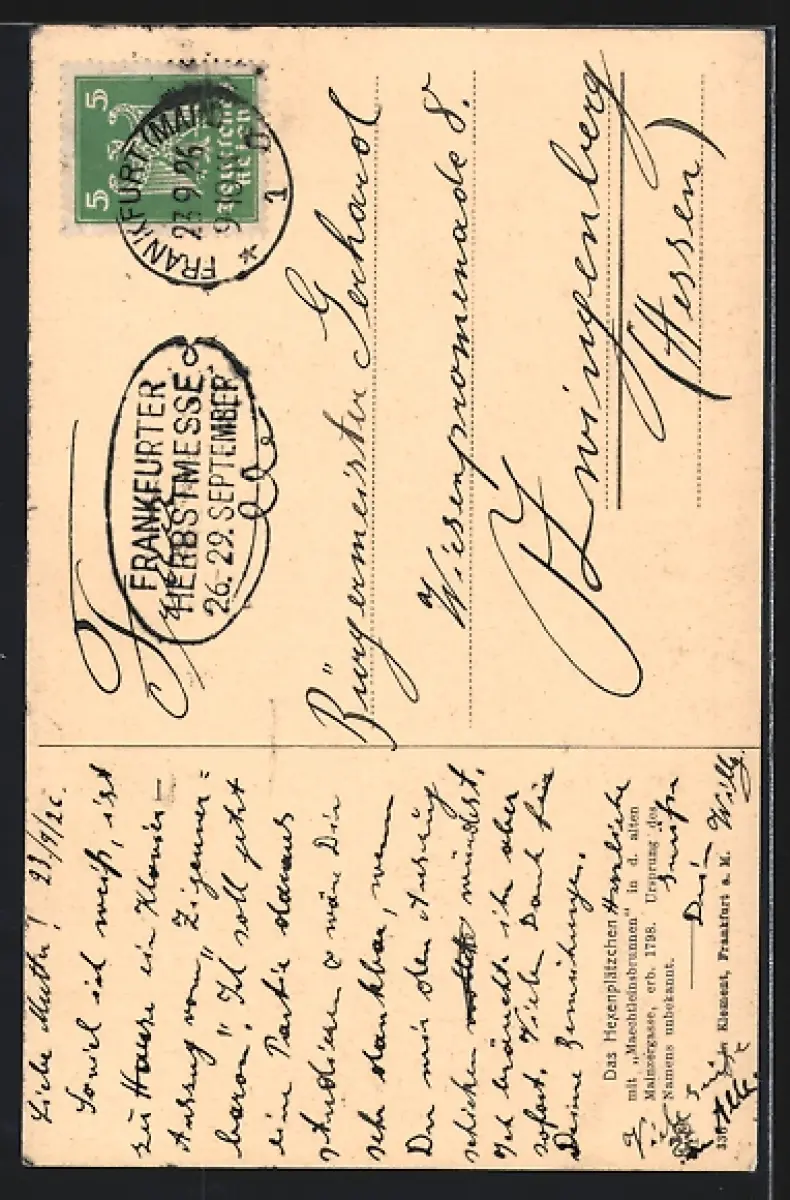 Liebe Mutter! 23/9/26.
Soviel ich weiß, ist
zu Hause ein Klavier-
Auszug vom "Zigeuner=
baron". Ich soll jetzt
eine Partie daraus
studieren & wäre Dir
sehr dankbar, wenn
Du mir den Auszug
schicken würdest.
Ich bräuchte ihn aber
sofort. Vielen Dank für
Deine Bemühungen.
Herzliche
Dein Willy.
Das Hexenplätzchen
mit „Maechtleinsbrunnen" in d. alten
Mainzergasse, erb. 1798. Ursprung des
Namens unbekannt.
Klement, Frankfurt a. M.
5 5
Deutsches Reich
FRANKFURT (MAIN)
23.9.26
1
FRANKFURTER
HERBSTMESSE
26.-29. SEPTEMBER
Bürgermeister Gerhard
Wiesenpromenade 8.
Zwingenberg
(Hessen)